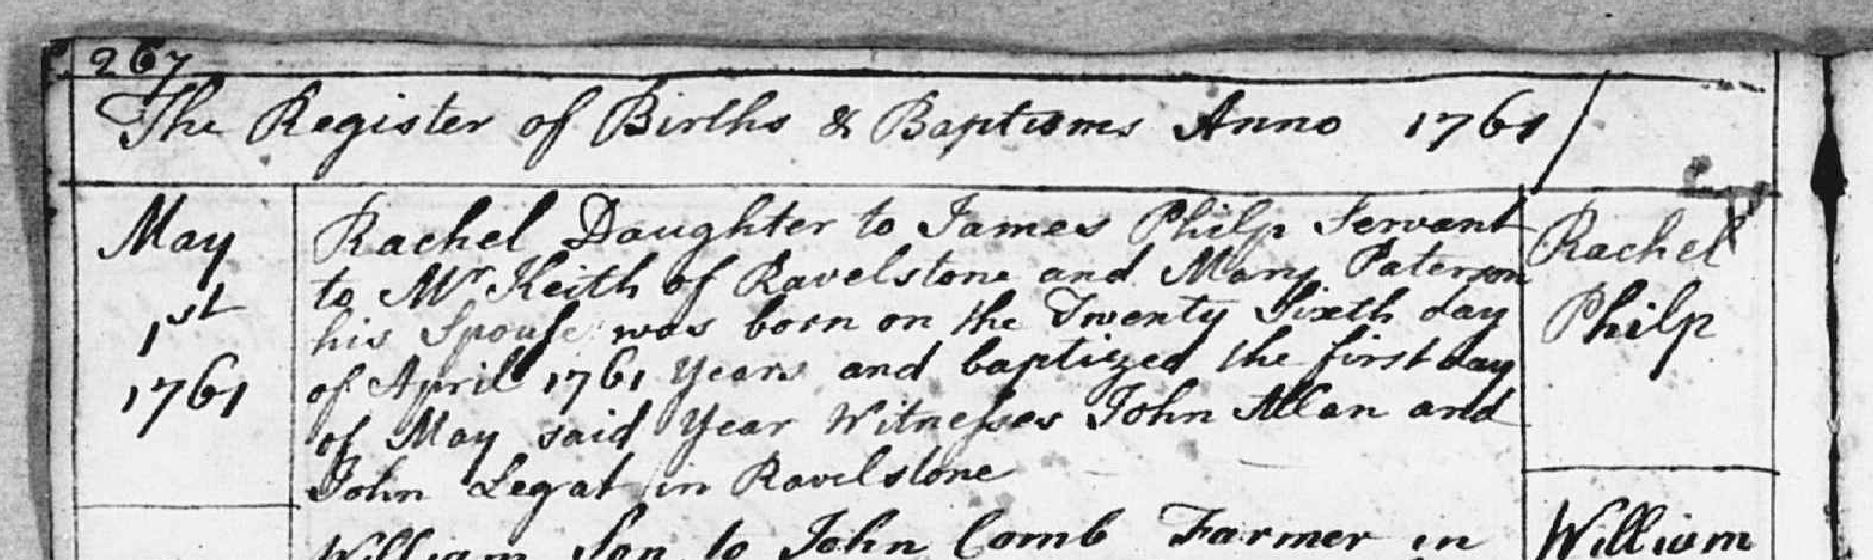 267
The Register of Births & Baptisms Anno 1761
May
1st
1761
Rachel Daughter to James Philp Servant
to Mr Keith of Ravelstone and Mary Paterson
his Spouse was born on the Twenty Sixth day
of April 1761 Years and baptized the first day
of May said Year Witnesses John Allan and
John Legat in Ravelstone
Rachel
Philp
William Son to John Comb Farmer in
William